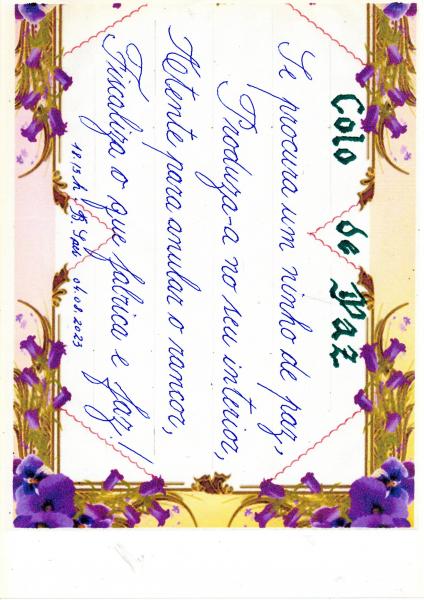 Colo de Paz
Se procura um ninho de paz,
Produza-a no seu interior,
Atente para anular o rancor,
Fiscaliza o que fabrica e faz!
18.15 h 01.08.2023